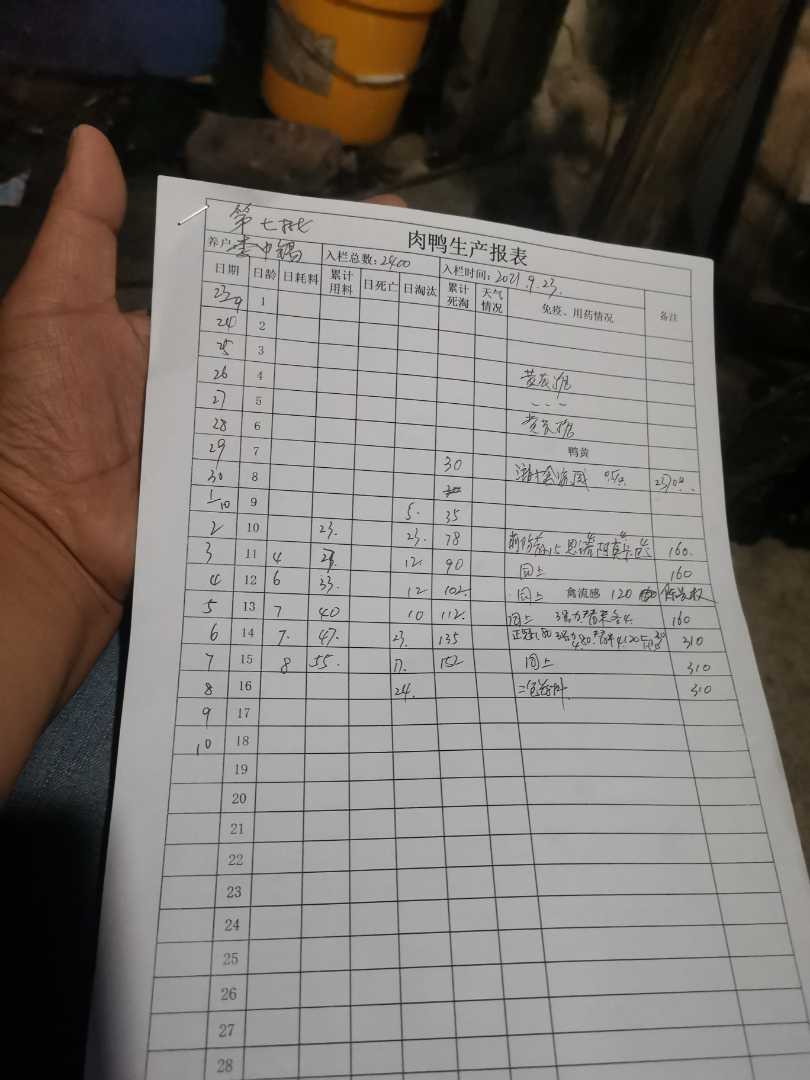 第七批
肉鸭生产报表
养户 入栏总数:2400 入栏时间:2021.9.23.
日期 日龄 日耗料 累计用料 日死亡 日淘汰 累计死淘 天气情况 免疫、用药情况 备注
23/9 1
24 2
25 3
26 4 黄芪
27 5
28 6 黄芪
29 7 30 鸭黄
30 8
1/10 9 5. 35
2 10 23. 23. 78 160.
3 11 4 12 90 同上 160
4 12 6 33. 12 102. 同上 禽流感 120
5 13 7 40 10 112. 同上 160
6 14 7. 47. 23. 135 310
7 15 8 55. 17. 152 同上 310
8 16 24. 310
9 17
10 18
19
20
21
22
23
24
25
26
27
28